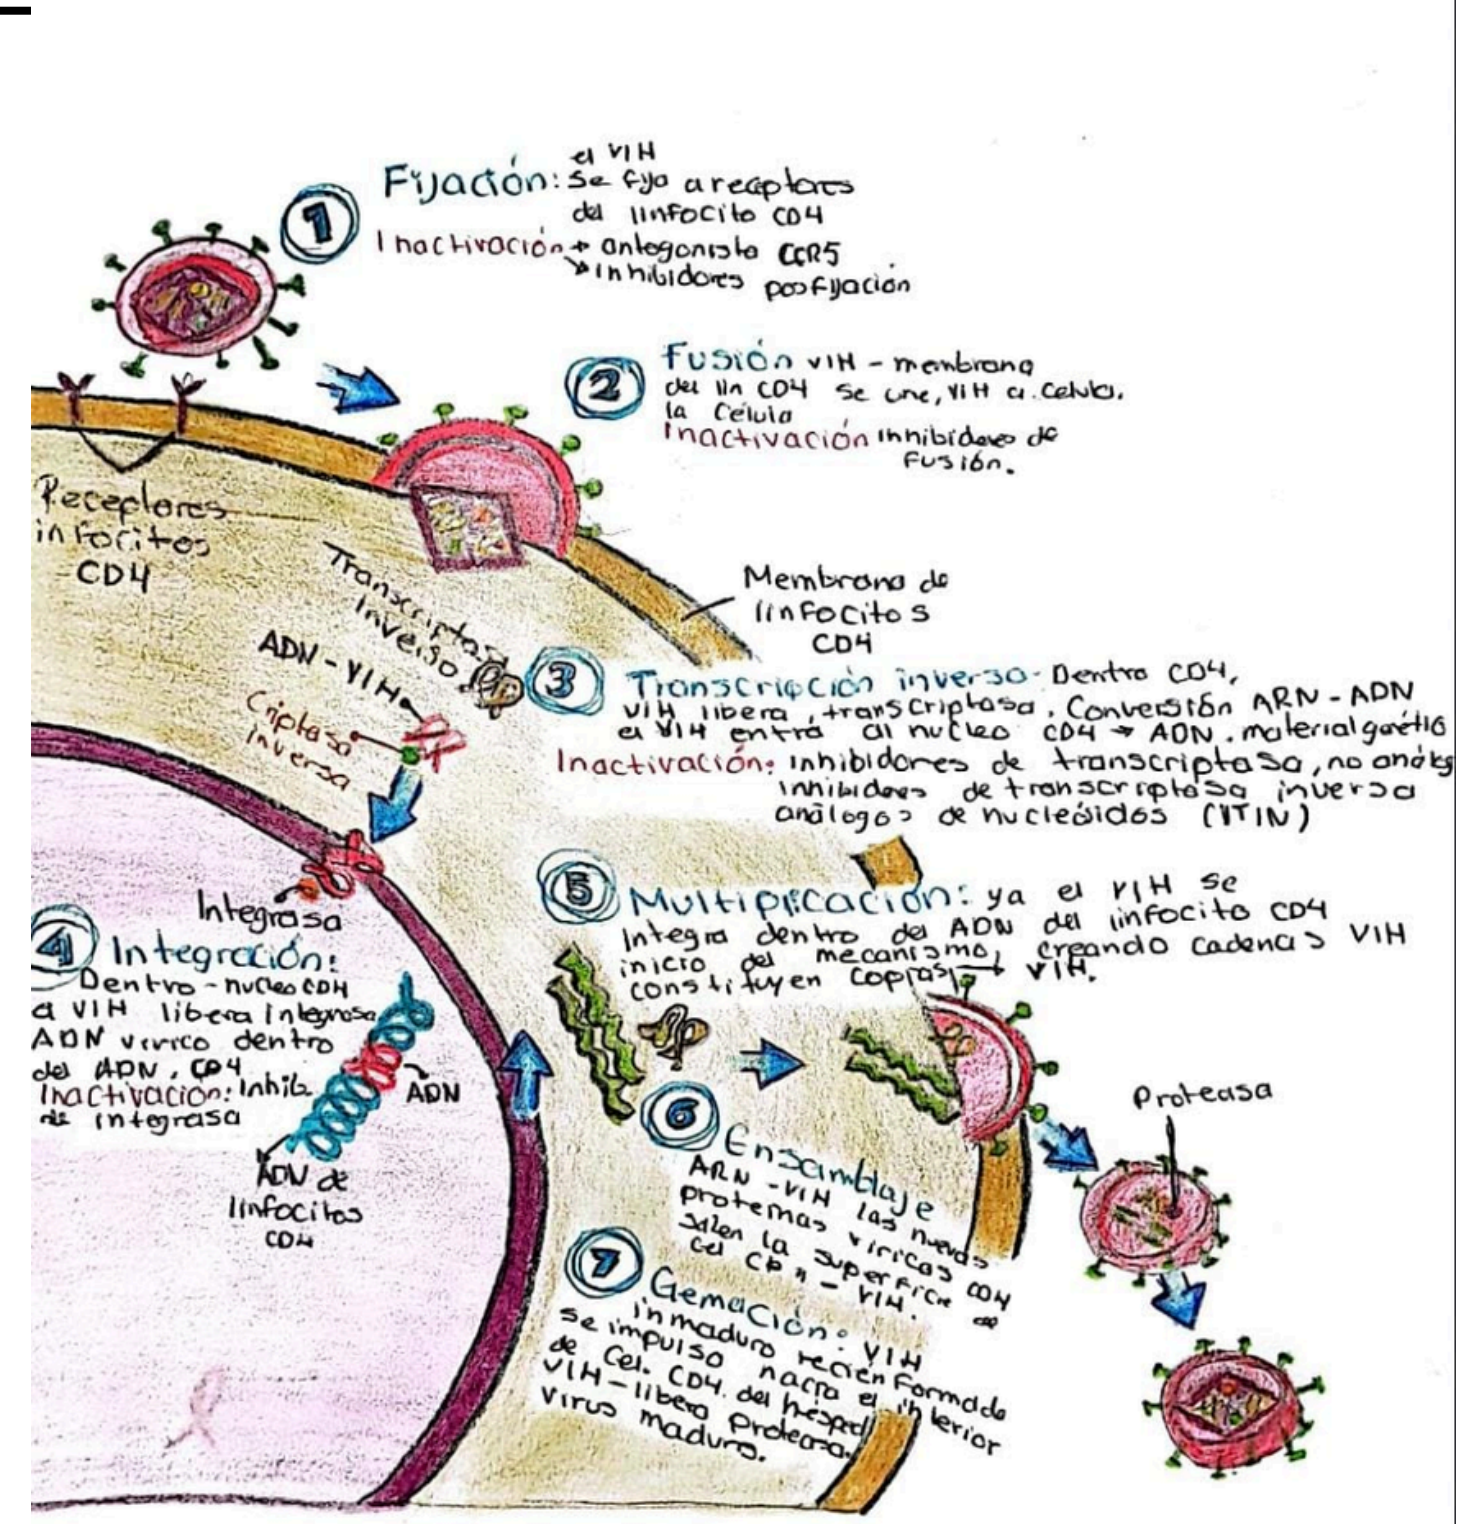 1
el VIH
Fijación: se fija a receptores
del linfocito CD4
Inactivación → antagonista CCR5
↘ inhibidores posfijación
2
Fusión VIH - membrana
del lin CD4 se une, VIH a. Celula.
la Célula
Inactivación inhibidores de
Fusión.
Receptores
infocitos
CD4
Membrana de
linfocitos
CD4
Transcriptasa
inverso
ADN-VIH
Criptasa
inversa
3
Transcripción inverso- Dentro CD4,
VIH libera, transcriptasa. Conversión ARN-ADN
el VIH entra al nucleo CD4 → ADN. material
Inactivación: inhibidores de transcriptasa, no
inhibidores de transcriptasa inversa
análogos de nucleósidos (ITIN)
Integrasa
4
Integración:
Dentro-nucleo CD4
el VIH libera integrasa
ADN virico dentro
del ADN, CD4
Inactivación: Inhib.
de integrasa
ADN
ADN de
linfocitos
CD4
5
Multiplicación: ya el VIH se
Integra dentro del ADN del linfocito CD4
inicio del mecanismo, creando cadenas VIH
constituyen copias → VIH.
6
Ensamblaje
ARN-VIH las nuevas
proteinas viricas CD4
salen la superficie de
cel CD4 - VIH.
Proteasa
7
Gemación: VIH
inmaduro recien formado
se impulso hacia el interior
de Cel. CD4. del hésped
VIH-libero proteasa.
virus maduro.